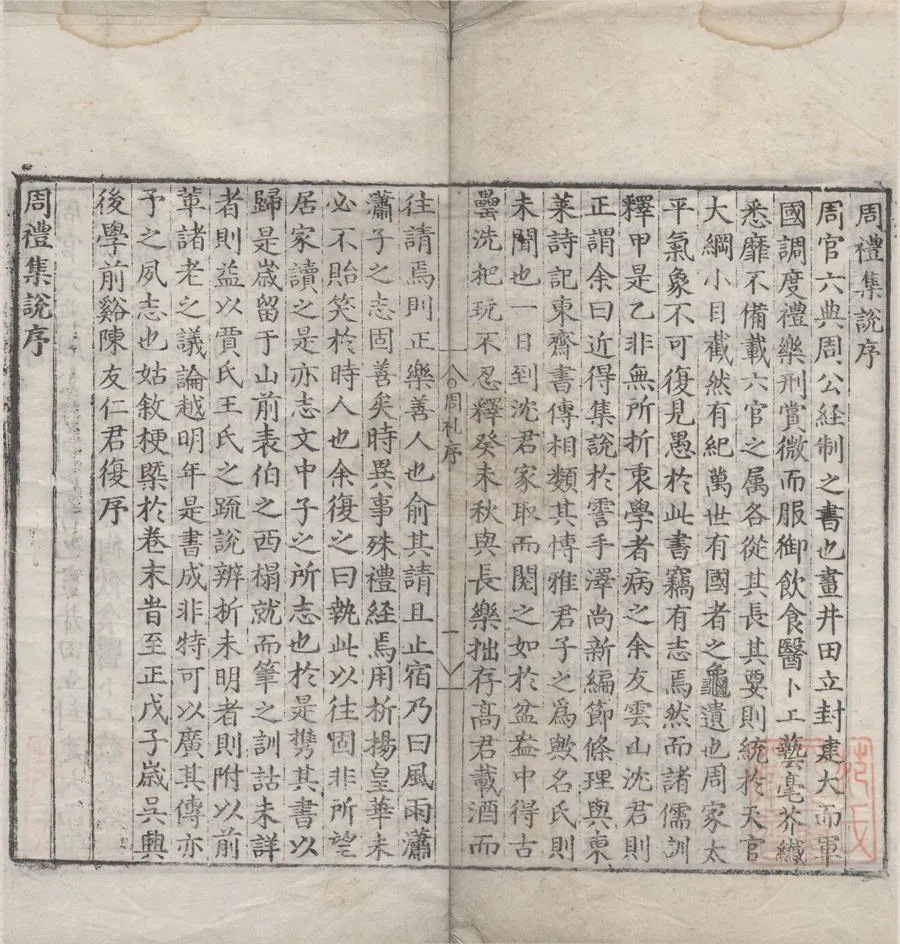 周禮集說序
周官六典周公経制之書也畫井田立封建大而軍
國調度禮樂刑賞微而服御飲食醫卜工藝毫芥纖
悉靡不備載六官之属各從其長其要則統於天官
大綱小目截然有紀萬世有國者之龜遺也周家太
平氣象不可復見愚於此書竊有志焉然而諸儒訓
釋甲是乙非無所折衷學者病之余友雲山沈君則
正謂余曰近得集說於霅手澤尚新編節條理與東
萊詩記東齋書傳相類其博雅君子之為歟名氏則
未聞也一日到沈君家取而閱之如於盆盎中得古
罍洗把玩不忍釋癸未秋與長樂拙存高君載酒而
周礼序
一
往請焉則正樂善人也俞其請且止宿乃曰風雨瀟
瀟子之志固善矣時異事殊禮經焉用折揚皇華未
必不貽笑於時人也余復之曰執此以往固非所望
居家讀之是亦志文中子之所志也於是携其書以
歸是歲留于山前表伯之西榻就而筆之訓詁未詳
者則益以賈氏王氏之疏說辨析未明者則附以前
軰諸老之議論越明年是書成非特可以廣其傳亦
予之夙志也姑敘梗槩於卷末旹至正戊子歲吳興
後學前谿陳友仁君復序
周禮集說序